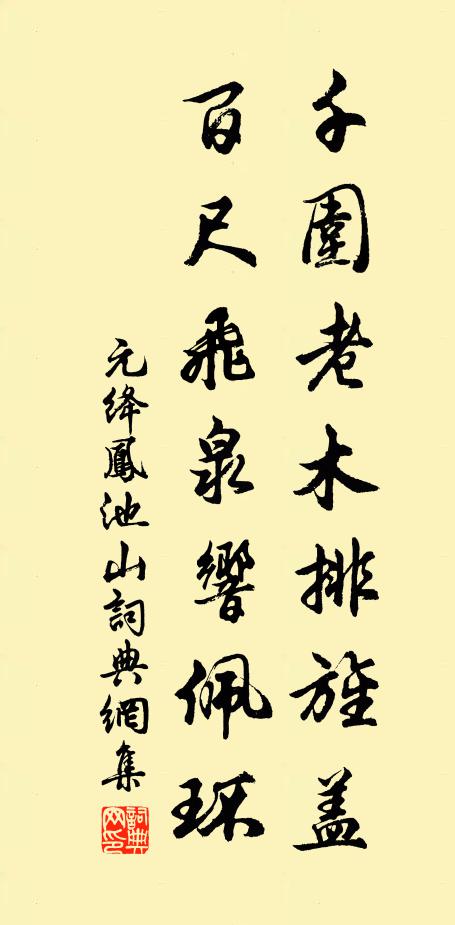 千圍老木排旌蓋
百尺飛泉響佩環
元絳鳳池山詞典網集
詞典
网印